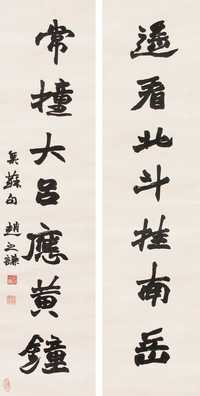 遥看北斗挂南岳
常撞大吕應黄鐘
集蘇句 趙之謙